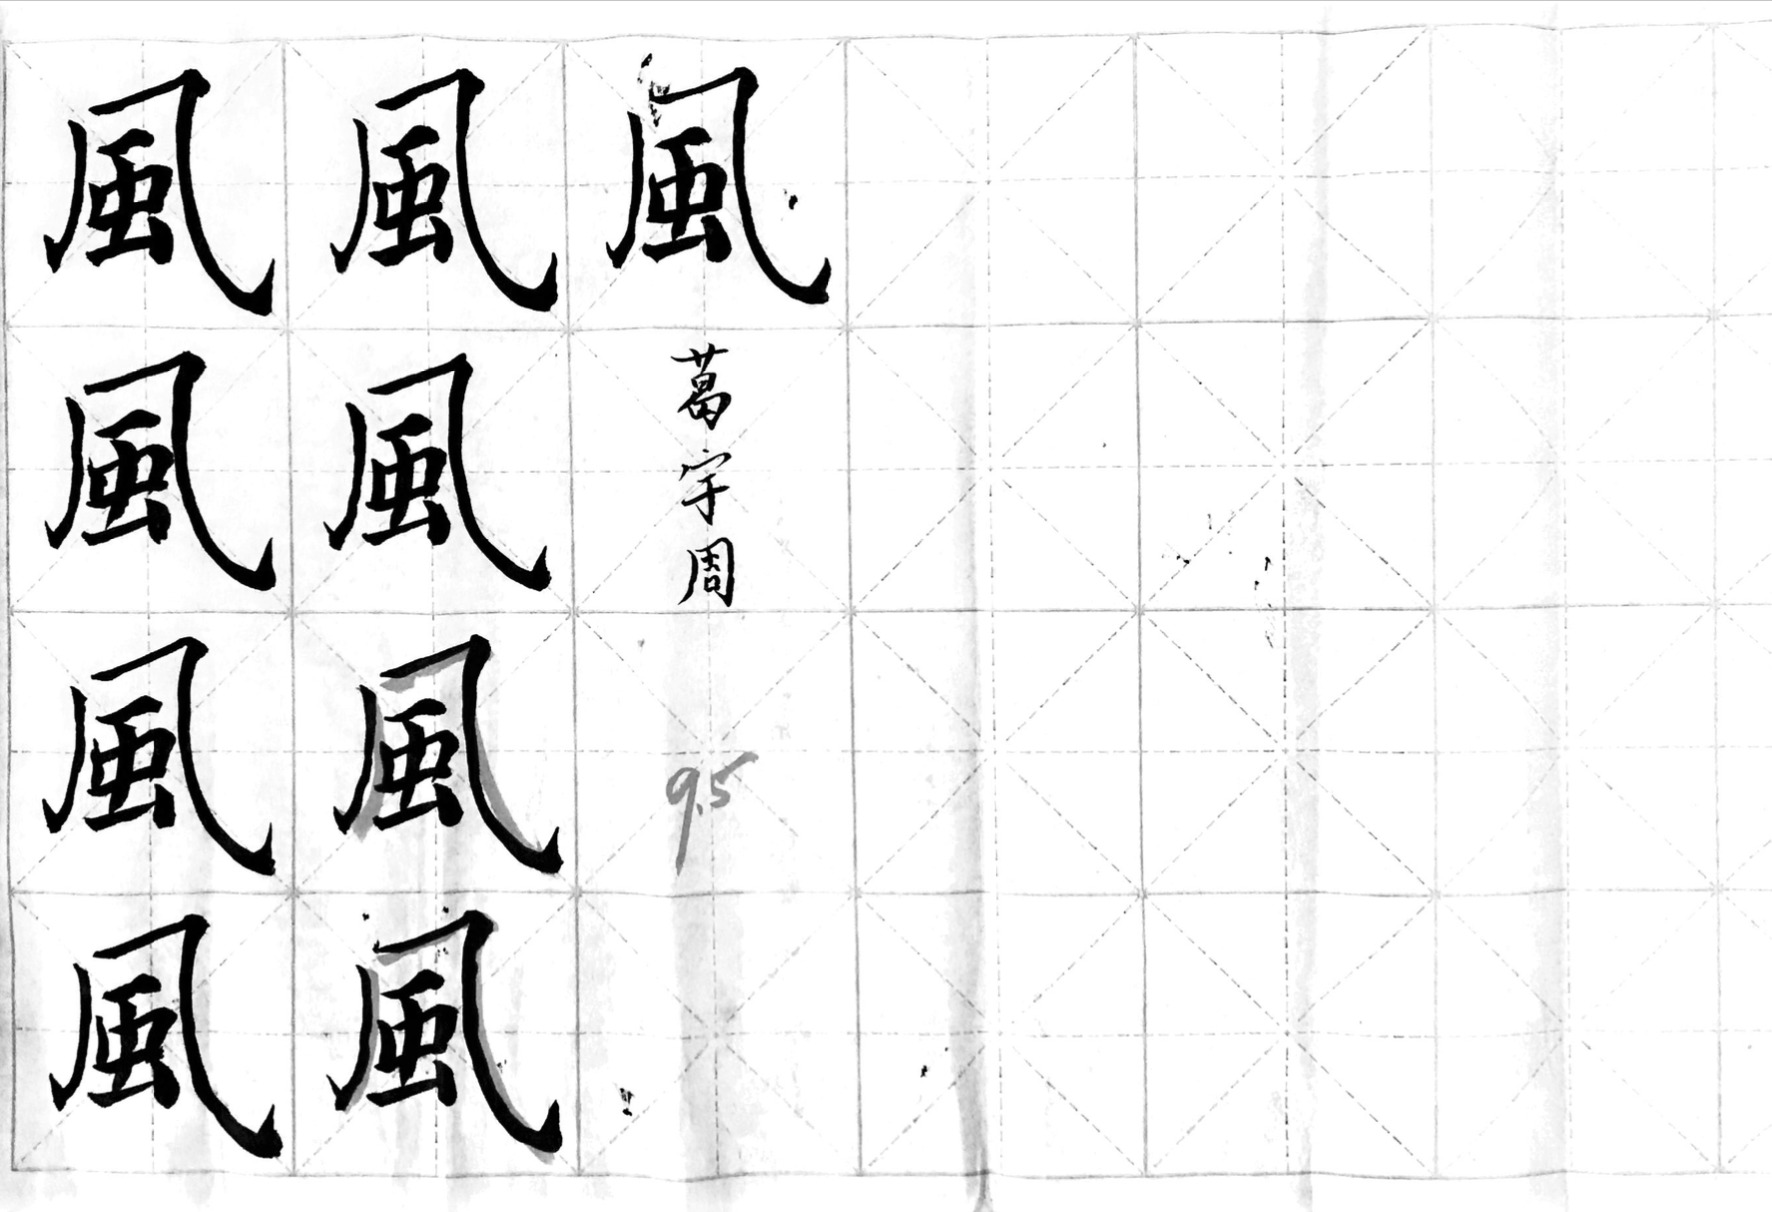 風 風 風
風 風
風 風
風 風
葛宇周
9.5